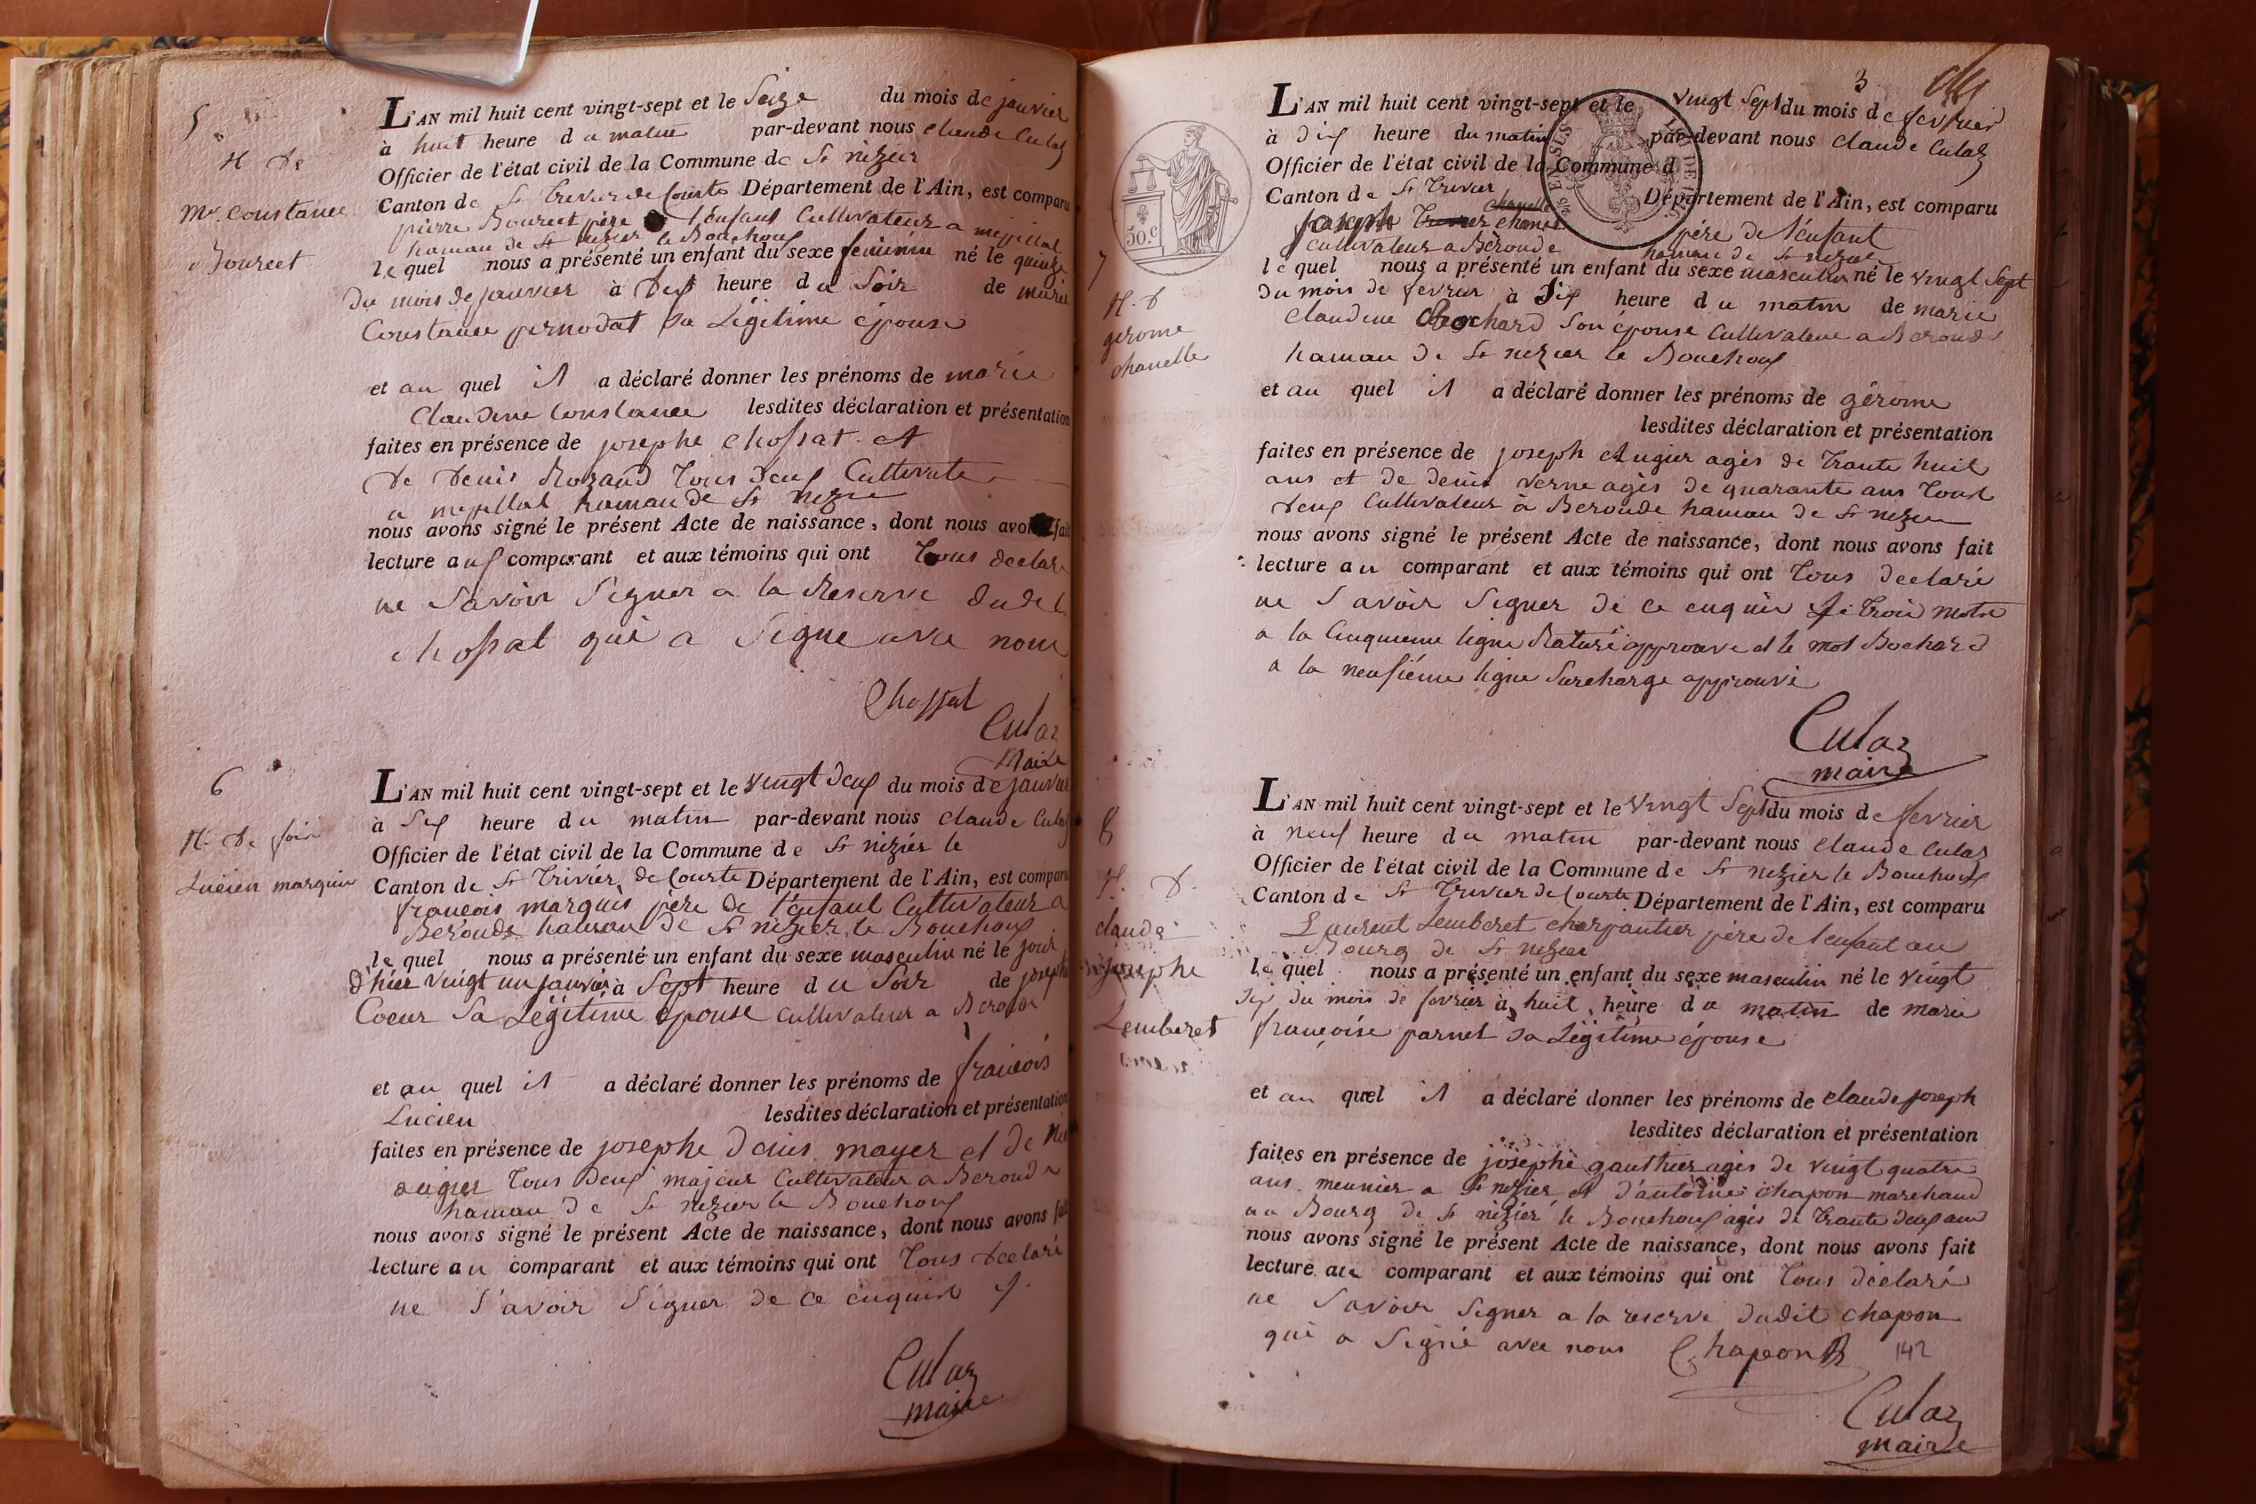 5
N. de
M. Constance
Bourcet
L'AN mil huit cent vingt-sept et le Seize du mois de janvier
à huit heure du matin par-devant nous claude Culaz
Officier de l'état civil de la Commune de St nizier
Canton de St trivier de Courte Département de l'Ain, est comparu
pierre Bourcet père l'enfant Cultivateur a
hamau de St nizier le Bouchoux
lequel nous a présenté un enfant du sexe feminin né le quinze
du mois de janvier à dix heure du Soir de marie
Constance pernodat sa Légitime épouse
et au quel il a déclaré donner les prénoms de marie
Claudine Constance lesdites déclaration et présentation
faites en présence de josephe Chossat et
de denis Rozand tous deux Cultivate
a hamau de St nizie
nous avons signé le présent Acte de naissance, dont nous avons fait
lecture aux comparant et aux témoins qui ont tous declare
ne Savoir Signer a la Reserve dudit
chossat qui a Signe avec nous
Chossat
Culaz
Maire
6
N. de foix
Lucien marquis
L'AN mil huit cent vingt-sept et le vingt deux du mois de janvier
à Six heure du matin par-devant nous claude Culaz
Officier de l'état civil de la Commune de St nizier le
Canton de St Trivier de Courte Département de l'Ain, est comparu
francois marquis père de l'enfant Cultivateur a
Béronde hamau de St nizier le Bouchoux
lequel nous a présenté un enfant du sexe masculin né le jour
d'hier vingt un janvier à Sept heure du Soir de joseph
Coeur Sa Légitime épouse cultivateur a
et au quel il a déclaré donner les prénoms de francois
Lucien lesdites déclaration et présentation
faites en présence de josephe denis mayer et de
augier tous deux majeur Cultivateur a Beronde
hamau de St nizier le Bouchoux
nous avons signé le présent Acte de naissance, dont nous avons fait
lecture au comparant et aux témoins qui ont tous declaré
ne Savoir Signer de ce enquis
Culaz
maire
3
50.c
7
N. d
gerome
chanelle
L'AN mil huit cent vingt-sept et le vingt Sept du mois de fevrier
à dix heure du matin par-devant nous claude Culaz
Officier de l'état civil de la Commune d
Canton de St Trivier Département de l'Ain, est comparu
chanelle
joseph père de l'enfant
cultivateur a Béronde hamau de St nizier
lequel nous a présenté un enfant du sexe masculin né le vingt Sept
du mois de fevrier à dix heure du matin de marie
claudine Bochard son épouse Cultivateur a Beronde
hamau de St nizier le Bouchoux
et au quel il a déclaré donner les prénoms de gérome
lesdites déclaration et présentation
faites en présence de joseph Augier agés de trante huit
ans et de denis Verne agés de quarante ans tous
deux Cultivateur à Beronde hamau de St nizier
nous avons signé le présent Acte de naissance, dont nous avons fait
lecture au comparant et aux témoins qui ont tous declaré
ne Savoir Signer de ce enquis trois mots
a la Cinquieme ligne Raturé approuve et le mot Bochard
a la neufiéme ligne Surcharge approuvé
Culaz
maire
8
N. d.
claude
josephe
Lemberet
L'AN mil huit cent vingt-sept et le vingt Sept du mois de fevrier
à neuf heure du matin par-devant nous claude Culaz
Officier de l'état civil de la Commune de St nizier le Bouchoux
Canton de St Trivier de Courte Département de l'Ain, est comparu
Laurent Lemberet charpantier père de l'enfant au
Bourg de St nizier
lequel nous a présenté un enfant du sexe masculin né le vingt
Six du mois de fevrier à huit heure du matin de marie
françoise parnet sa Légitime épouse
et au quel il a déclaré donner les prénoms de claude joseph
lesdites déclaration et présentation
faites en présence de josephe gauthier agés de vingt quatre
ans meunier a St nizier et d'antoine chapon marchand
au Bourg de St nizier le Bouchoux agés de trante deux ans
nous avons signé le présent Acte de naissance, dont nous avons fait
lecture au comparant et aux témoins qui ont tous déclaré
ne Savoir Signer a la reserve dudit chapon
qui a Signé avec nous Chapon 142
Culaz
maire